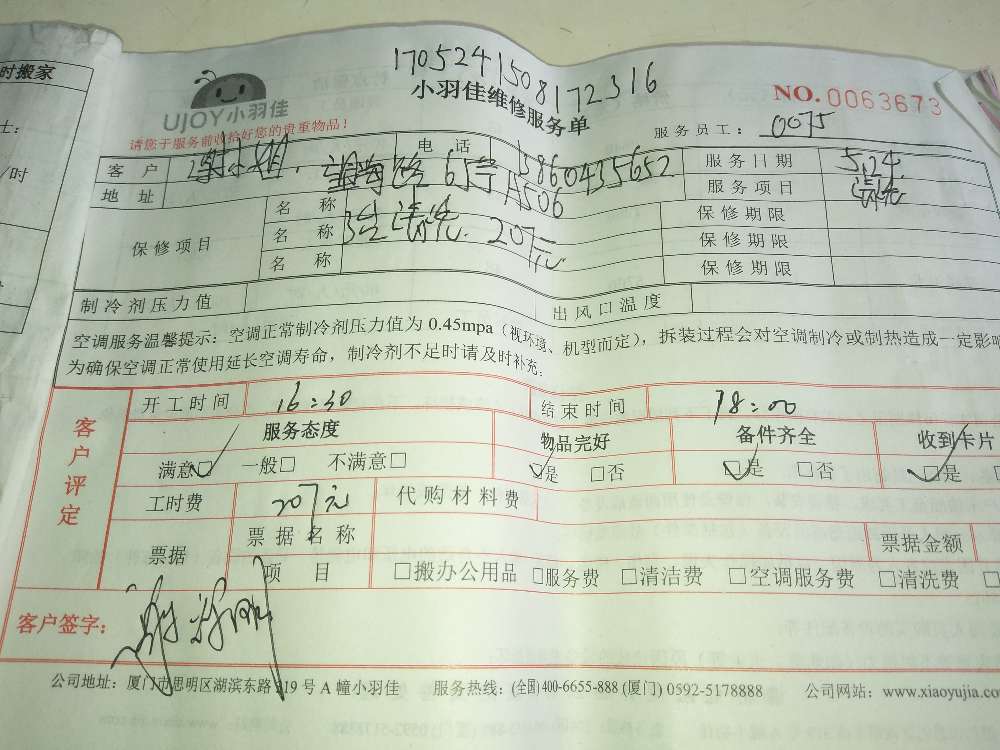 时搬家
17052415081​72316
UJOY小羽佳
小羽佳维修服务单
NO.0063673
请您于服务前收拾好您的贵重物品!
服务员工: 0075
客户 谢小姐 电话 13860435652 服务日期 5.24
地址 65号A506 服务项目 清洗
保修项目 名称 清洗 207元 保修期限
名称 保修期限
名称 保修期限
制冷剂压力值 出风口温度
空调服务温馨提示:空调正常制冷剂压力值为 0.45mpa(视环境、机型而定),拆装过程会对空调制冷或制热造成一定影响
为确保空调正常使用延长空调寿命,制冷剂不足时请及时补充。
客户评定
开工时间 16:30 结束时间 18:00
服务态度 物品完好 备件齐全 收到卡片
满意☑ 一般□ 不满意□ ☑是 □否 ☑是 □否 ☑是
工时费 207元 代购材料费
票据 票据名称 票据金额
项目 □搬办公用品 □服务费 □清洁费 □空调服务费 □清洗费
客户签字:
公司地址:厦门市思明区湖滨东路 319 号 A 幢小羽佳 服务热线:(全国)400-6655-888 (厦门) 0592-5178888 公司网站:www.xiaoyujia.com